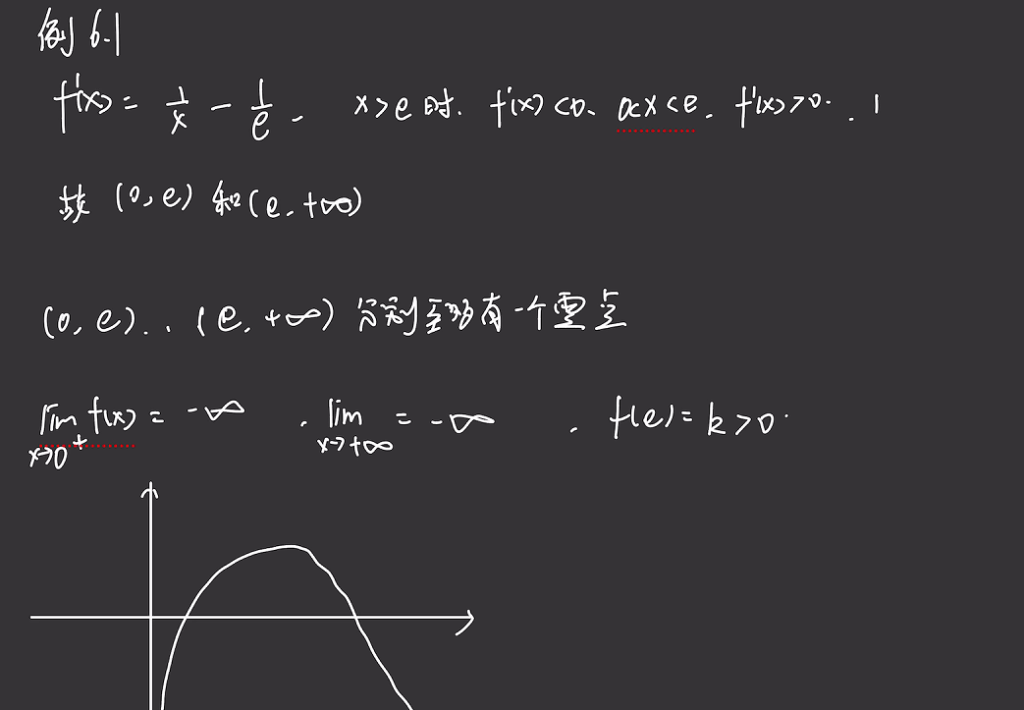 例 6.1
f'(x) = 1/x - 1/e. x>e 时. f'(x)<0、 0<x<e. f'(x)>0.
故 (0, e) 和 (e, +∞)
(0, e)、(e, +∞) 分别至多有一个零点
lim x→0⁺ f(x) = -∞ . lim x→+∞ = -∞ . f(e) = k > 0.